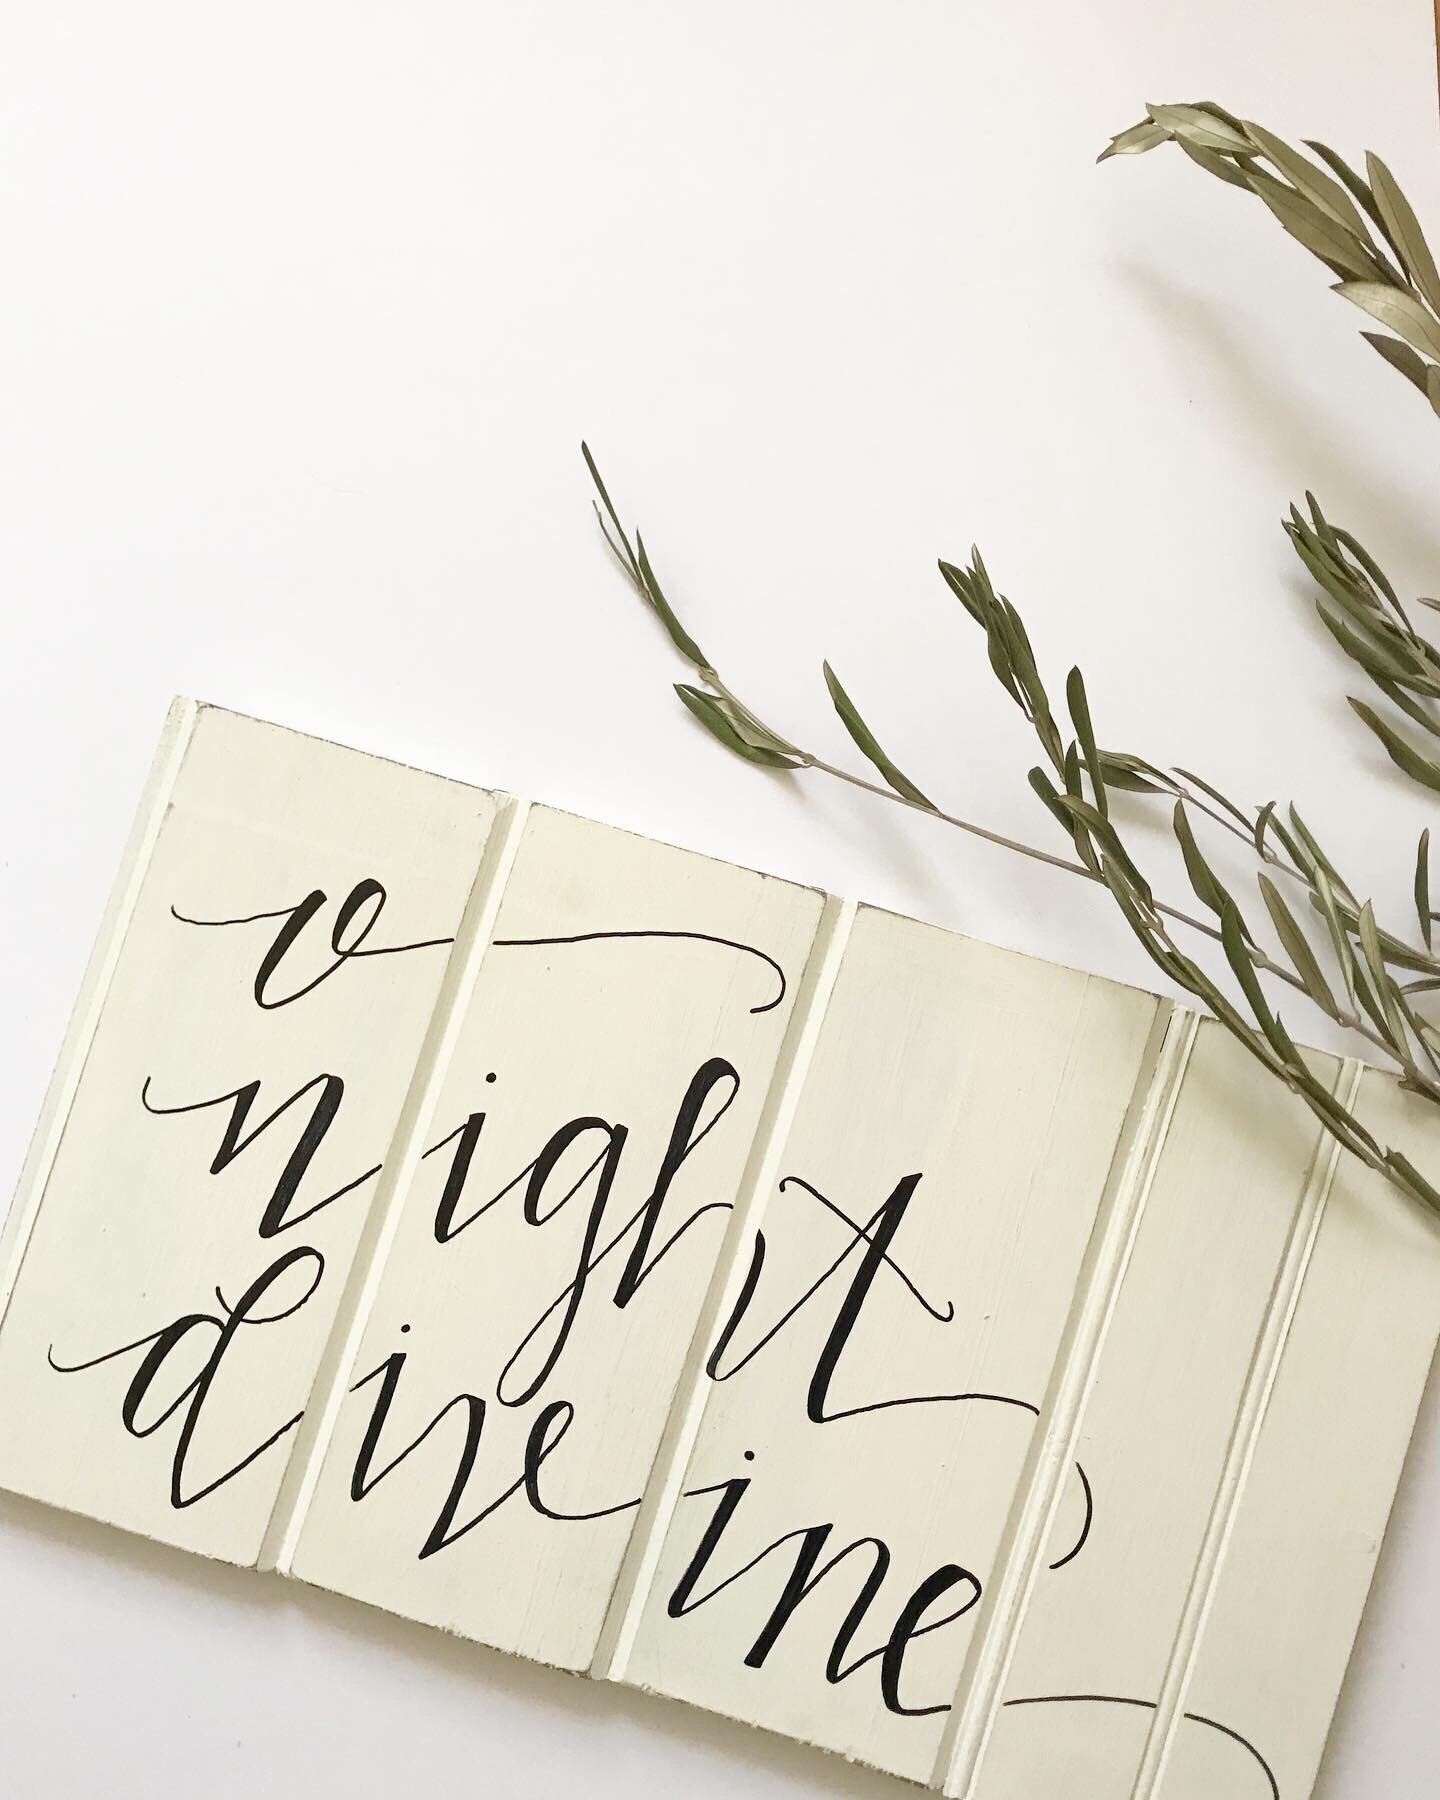 o
night,
divine